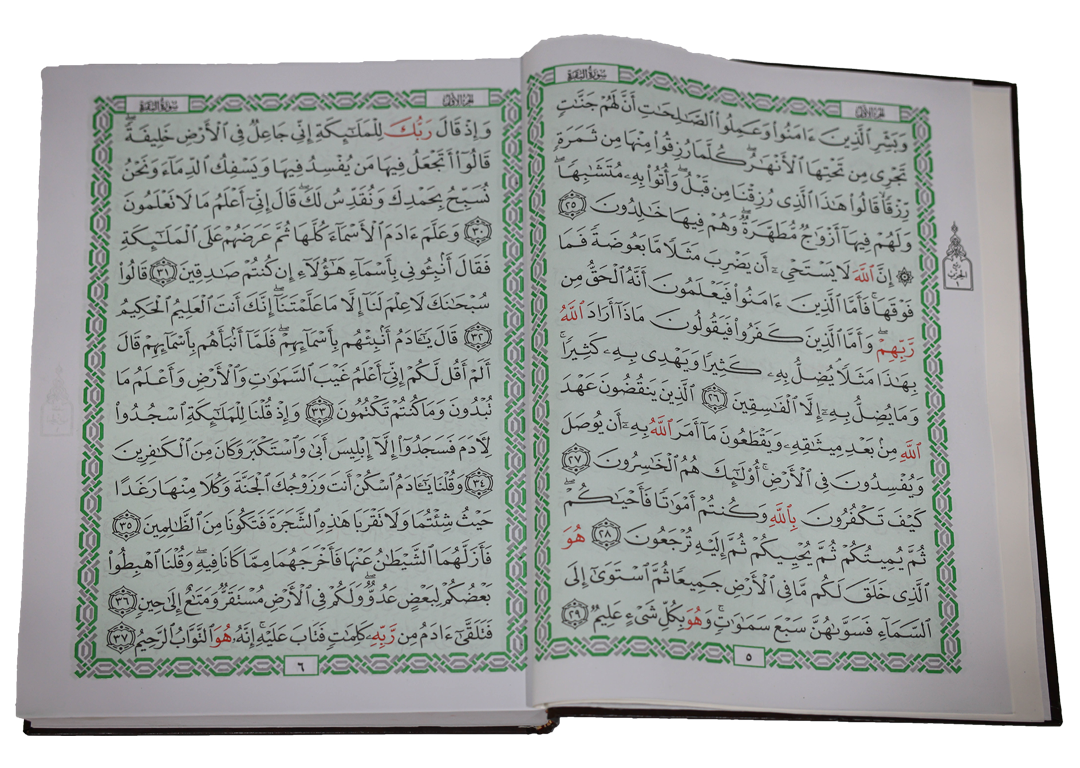 سورة البقرة
الجزء الأول
وَبَشِّرِ ٱلَّذِينَ ءَامَنُوا۟ وَعَمِلُوا۟ ٱلصَّـٰلِحَـٰتِ أَنَّ لَهُمْ جَنَّـٰتٍ
تَجْرِى مِن تَحْتِهَا ٱلْأَنْهَـٰرُ ۖ كُلَّمَا رُزِقُوا۟ مِنْهَا مِن ثَمَرَةٍ
رِّزْقًا قَالُوا۟ هَـٰذَا ٱلَّذِى رُزِقْنَا مِن قَبْلُ ۖ وَأُتُوا۟ بِهِۦ مُتَشَـٰبِهًا ۖ
وَلَهُمْ فِيهَآ أَزْوَٰجٌ مُّطَهَّرَةٌ ۖ وَهُمْ فِيهَا خَـٰلِدُونَ ٢٥
۞ إِنَّ ٱللَّهَ لَا يَسْتَحْىِۦٓ أَن يَضْرِبَ مَثَلًا مَّا بَعُوضَةً فَمَا
فَوْقَهَا ۚ فَأَمَّا ٱلَّذِينَ ءَامَنُوا۟ فَيَعْلَمُونَ أَنَّهُ ٱلْحَقُّ مِن
رَّبِّهِمْ ۖ وَأَمَّا ٱلَّذِينَ كَفَرُوا۟ فَيَقُولُونَ مَاذَآ أَرَادَ ٱللَّهُ
بِهَـٰذَا مَثَلًا ۘ يُضِلُّ بِهِۦ كَثِيرًا وَيَهْدِى بِهِۦ كَثِيرًا ۚ
وَمَا يُضِلُّ بِهِۦٓ إِلَّا ٱلْفَـٰسِقِينَ ٢٦ ٱلَّذِينَ يَنقُضُونَ عَهْدَ
ٱللَّهِ مِنۢ بَعْدِ مِيثَـٰقِهِۦ وَيَقْطَعُونَ مَآ أَمَرَ ٱللَّهُ بِهِۦٓ أَن يُوصَلَ
وَيُفْسِدُونَ فِى ٱلْأَرْضِ ۚ أُو۟لَـٰٓئِكَ هُمُ ٱلْخَـٰسِرُونَ ٢٧
كَيْفَ تَكْفُرُونَ بِٱللَّهِ وَكُنتُمْ أَمْوَٰتًا فَأَحْيَـٰكُمْ ۖ
ثُمَّ يُمِيتُكُمْ ثُمَّ يُحْيِيكُمْ ثُمَّ إِلَيْهِ تُرْجَعُونَ ٢٨ هُوَ
ٱلَّذِى خَلَقَ لَكُم مَّا فِى ٱلْأَرْضِ جَمِيعًا ثُمَّ ٱسْتَوَىٰٓ إِلَى
ٱلسَّمَآءِ فَسَوَّىٰهُنَّ سَبْعَ سَمَـٰوَٰتٍ ۚ وَهُوَ بِكُلِّ شَىْءٍ عَلِيمٌ ٢٩
٥
سورة البقرة
الجزء الأول
وَإِذْ قَالَ رَبُّكَ لِلْمَلَـٰٓئِكَةِ إِنِّى جَاعِلٌ فِى ٱلْأَرْضِ خَلِيفَةً ۖ
قَالُوٓا۟ أَتَجْعَلُ فِيهَا مَن يُفْسِدُ فِيهَا وَيَسْفِكُ ٱلدِّمَآءَ وَنَحْنُ
نُسَبِّحُ بِحَمْدِكَ وَنُقَدِّسُ لَكَ ۖ قَالَ إِنِّىٓ أَعْلَمُ مَا لَا تَعْلَمُونَ
٣٠ وَعَلَّمَ ءَادَمَ ٱلْأَسْمَآءَ كُلَّهَا ثُمَّ عَرَضَهُمْ عَلَى ٱلْمَلَـٰٓئِكَةِ
فَقَالَ أَنۢبِـُٔونِى بِأَسْمَآءِ هَـٰٓؤُلَآءِ إِن كُنتُمْ صَـٰدِقِينَ ٣١ قَالُوا۟
سُبْحَـٰنَكَ لَا عِلْمَ لَنَآ إِلَّا مَا عَلَّمْتَنَآ ۖ إِنَّكَ أَنتَ ٱلْعَلِيمُ ٱلْحَكِيمُ
٣٢ قَالَ يَـٰٓـَٔادَمُ أَنۢبِئْهُم بِأَسْمَآئِهِمْ ۖ فَلَمَّآ أَنۢبَأَهُم بِأَسْمَآئِهِمْ قَالَ
أَلَمْ أَقُل لَّكُمْ إِنِّىٓ أَعْلَمُ غَيْبَ ٱلسَّمَـٰوَٰتِ وَٱلْأَرْضِ وَأَعْلَمُ مَا
تُبْدُونَ وَمَا كُنتُمْ تَكْتُمُونَ ٣٣ وَإِذْ قُلْنَا لِلْمَلَـٰٓئِكَةِ ٱسْجُدُوا۟
لِـَٔادَمَ فَسَجَدُوٓا۟ إِلَّآ إِبْلِيسَ أَبَىٰ وَٱسْتَكْبَرَ وَكَانَ مِنَ ٱلْكَـٰفِرِينَ
٣٤ وَقُلْنَا يَـٰٓـَٔادَمُ ٱسْكُنْ أَنتَ وَزَوْجُكَ ٱلْجَنَّةَ وَكُلَا مِنْهَا رَغَدًا
حَيْثُ شِئْتُمَا وَلَا تَقْرَبَا هَـٰذِهِ ٱلشَّجَرَةَ فَتَكُونَا مِنَ ٱلظَّـٰلِمِينَ ٣٥
فَأَزَلَّهُمَا ٱلشَّيْطَـٰنُ عَنْهَا فَأَخْرَجَهُمَا مِمَّا كَانَا فِيهِ ۖ وَقُلْنَا ٱهْبِطُوا۟
بَعْضُكُمْ لِبَعْضٍ عَدُوٌّ ۖ وَلَكُمْ فِى ٱلْأَرْضِ مُسْتَقَرٌّ وَمَتَـٰعٌ إِلَىٰ حِينٍ ٣٦
فَتَلَقَّىٰٓ ءَادَمُ مِن رَّبِّهِۦ كَلِمَـٰتٍ فَتَابَ عَلَيْهِ ۚ إِنَّهُۥ هُوَ ٱلتَّوَّابُ ٱلرَّحِيمُ ٣٧
٦